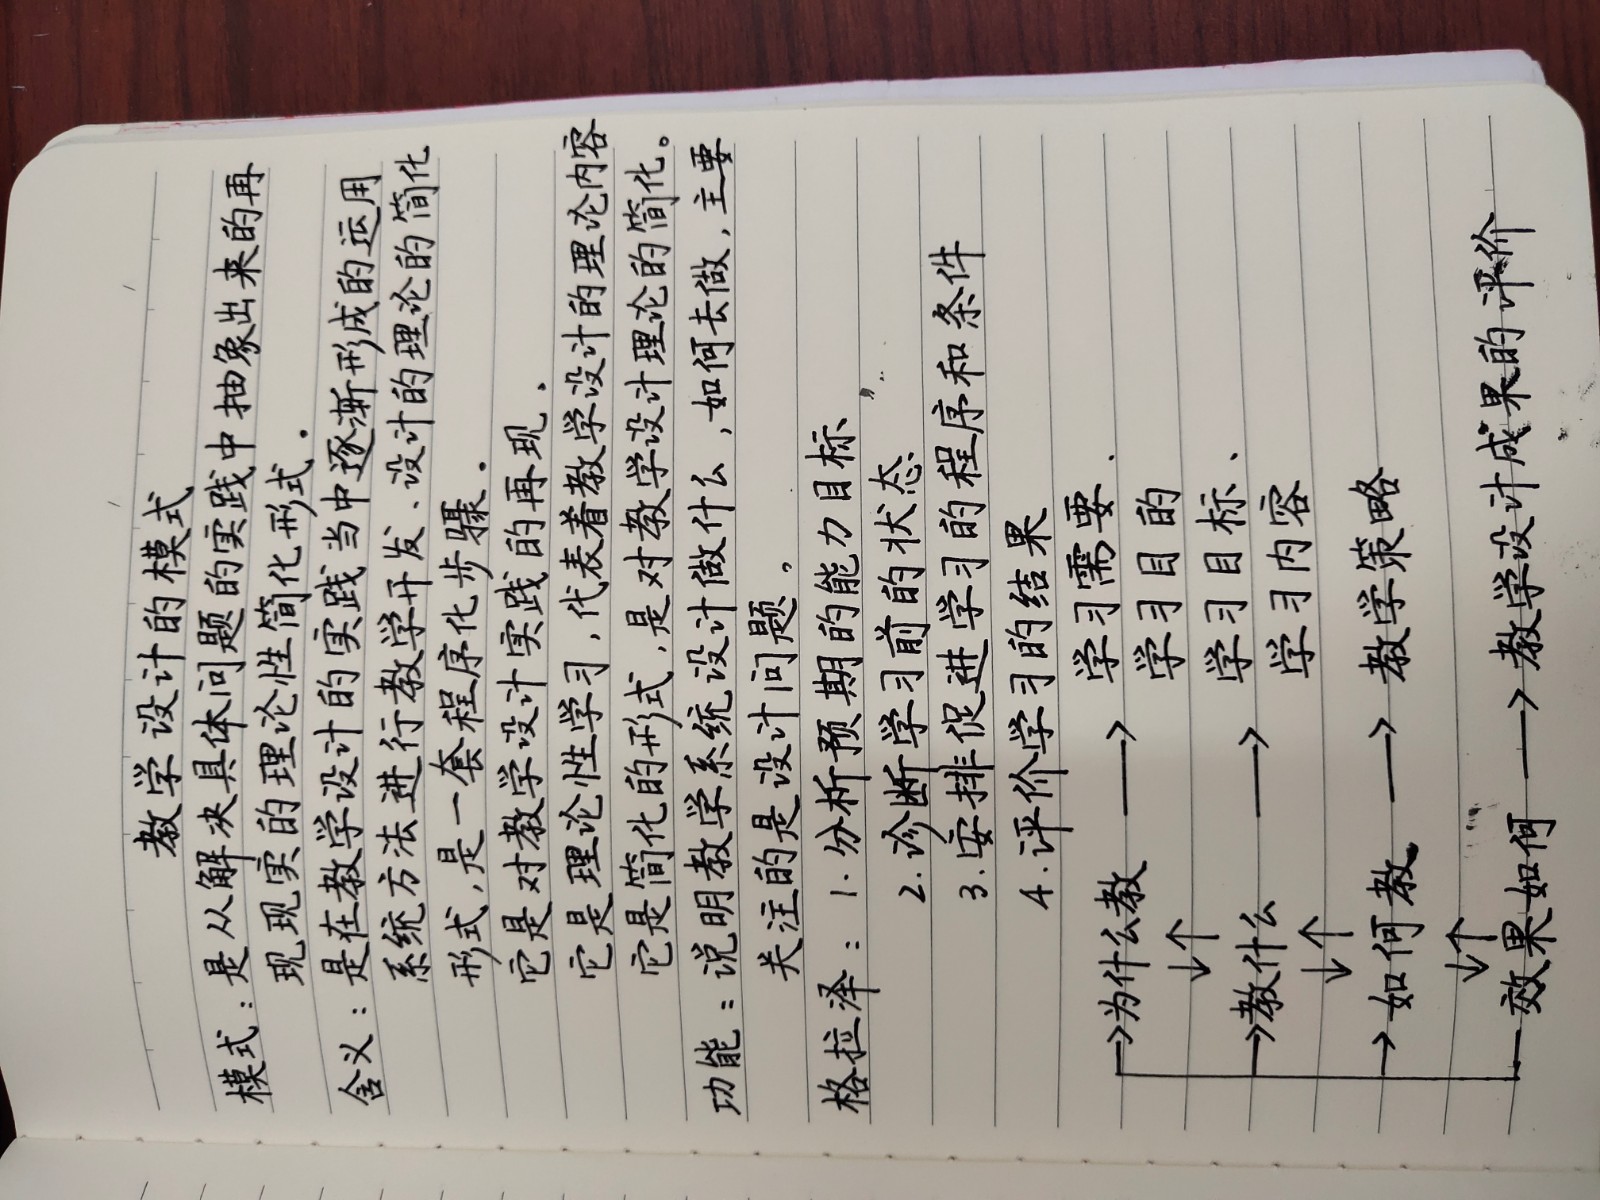 教学设计的模式
模式：是从解决具体问题的实践中抽象出来的再
现现实的理论性简化形式.
含义：是在教学设计的实践当中逐渐形成的运用
系统方法进行教学开发、设计的理论的简化
形式，是一套程序化步骤.
它是对教学设计实践的再现.
它是理论性学习，代表着教学设计的理论内容
它是简化的形式，是对教学设计理论的简化。
功能：说明教学系统设计做什么，如何去做，主要
关注的是设计问题。
格拉泽：1.分析预期的能力目标
2.诊断学习前的状态
3.安排促进学习的程序和条件
4.评价学习的结果
→为什么教 → 学习需要、
↓↑ 学习目的
→教什么 → 学习目标、
↓↑ 学习内容
→如何教 → 教学策略
↓↑
效果如何 → 教学设计成果的评价